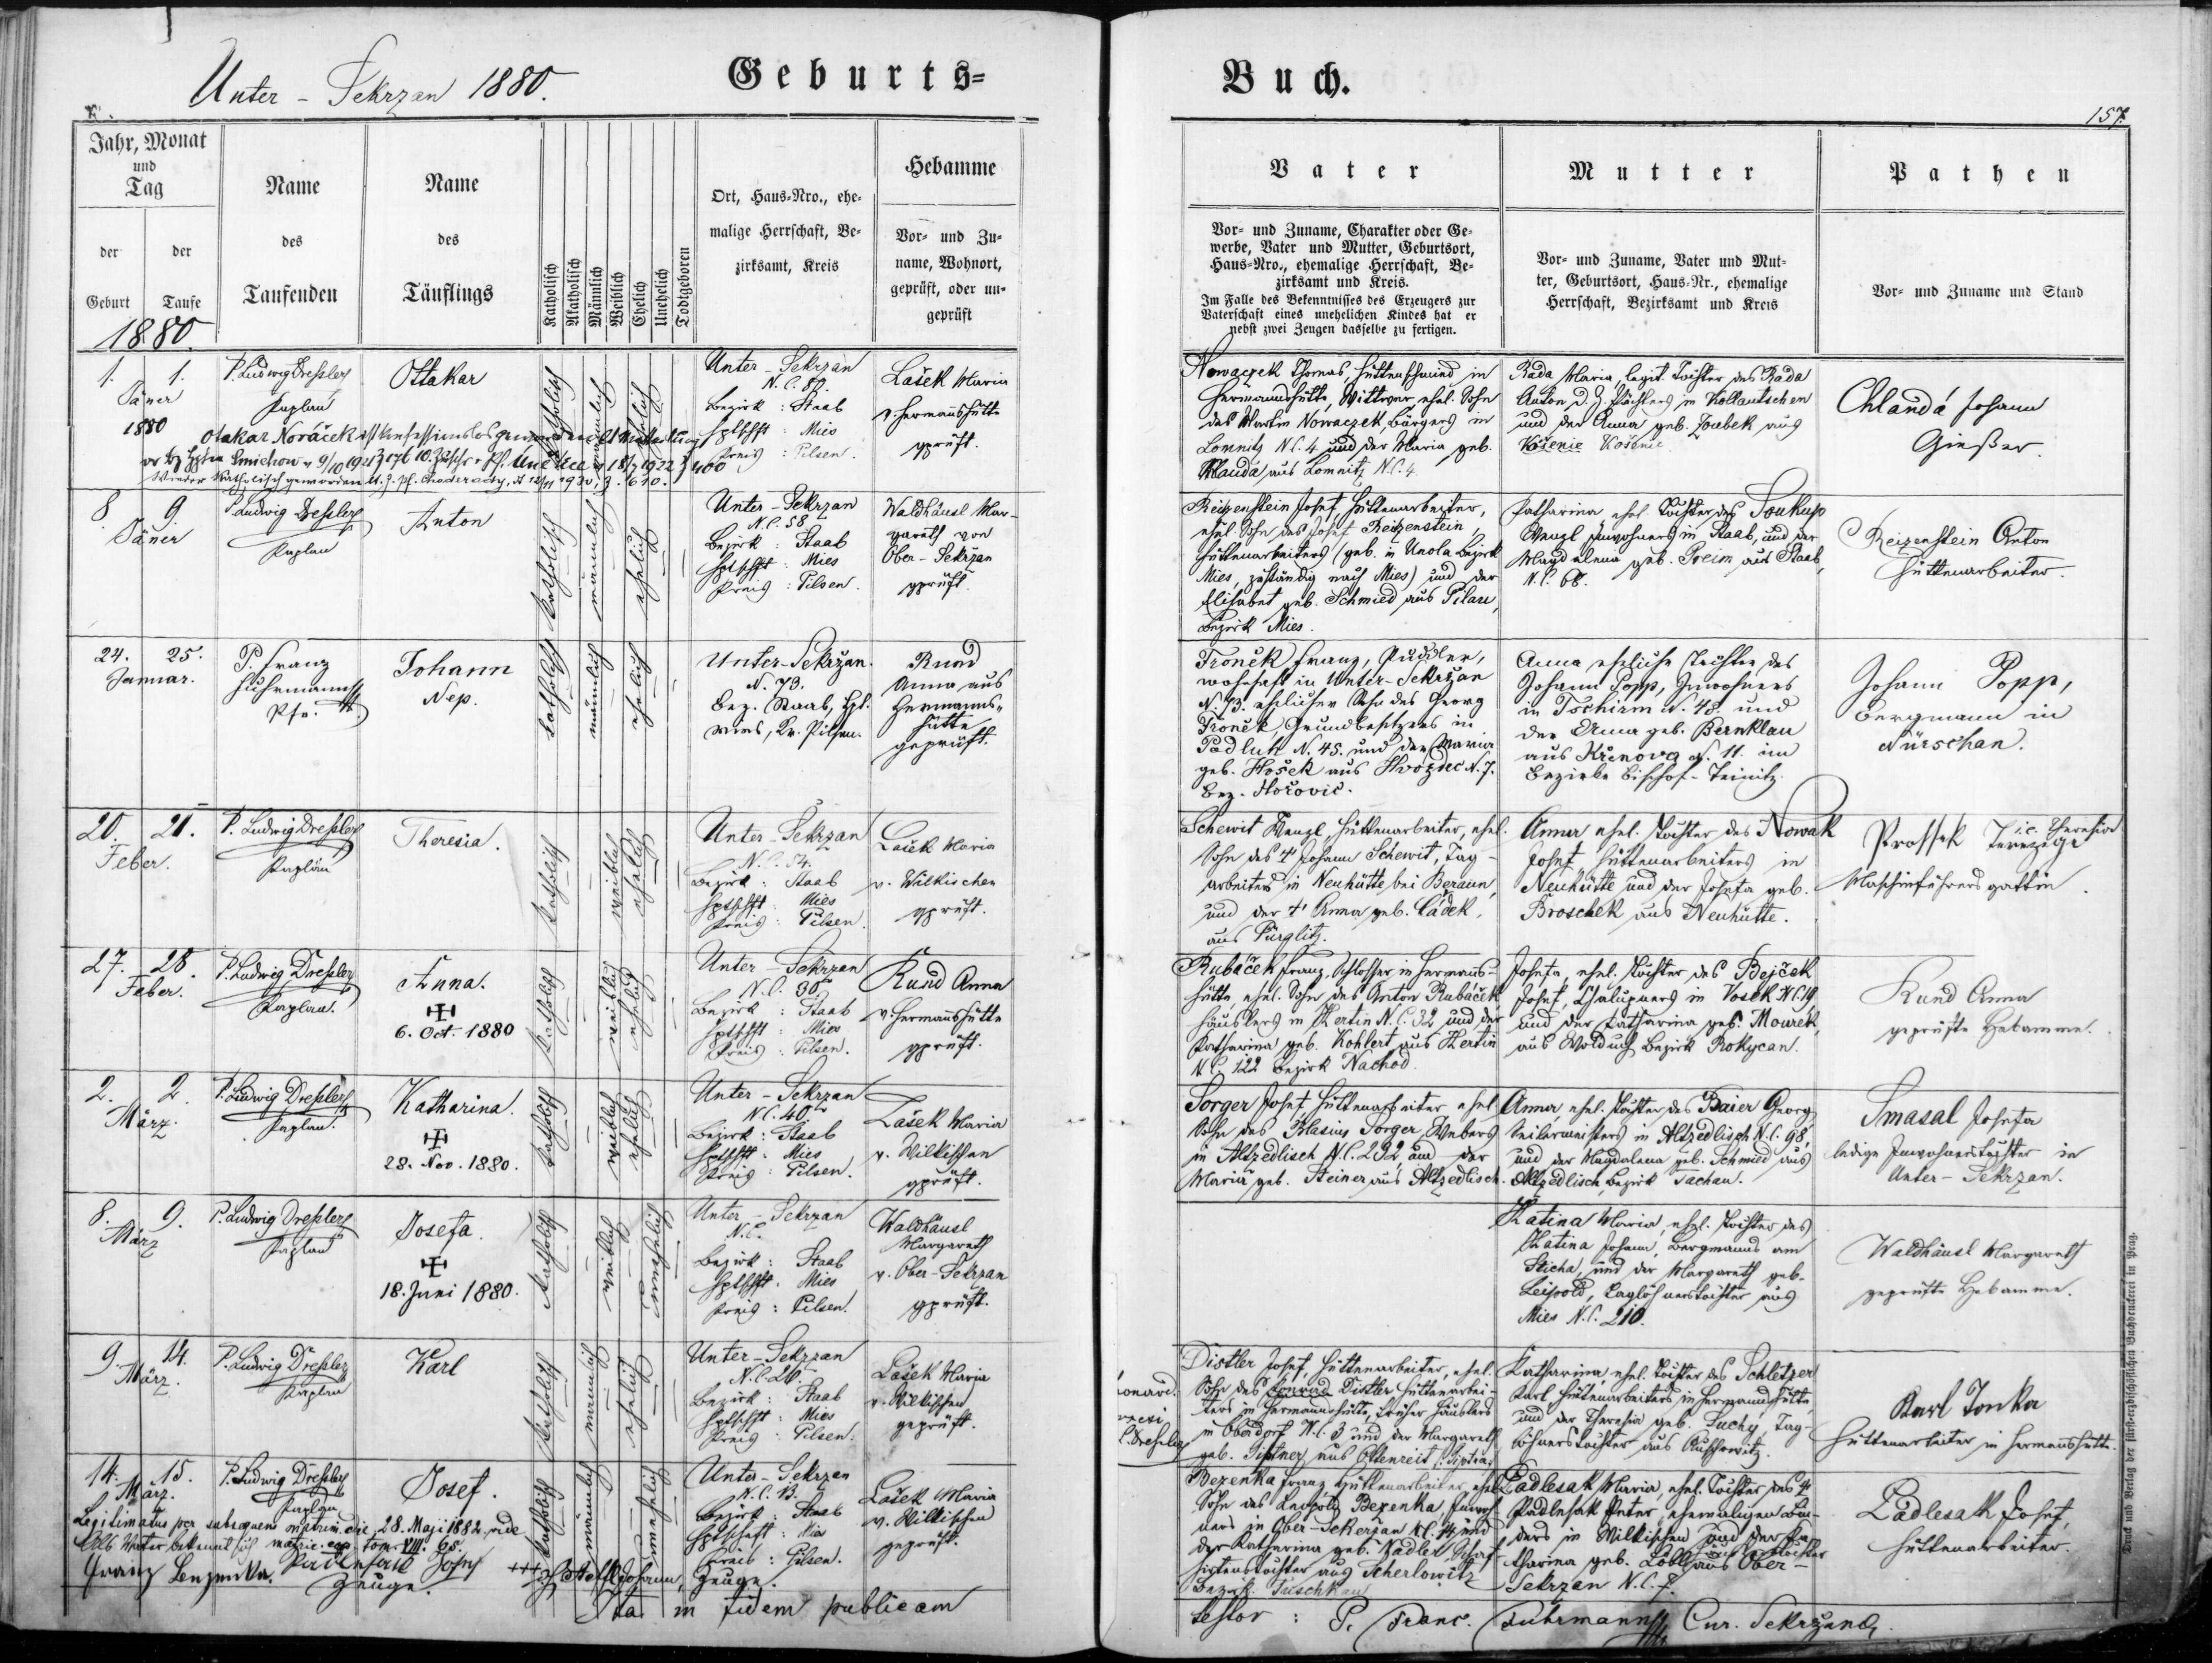 Unter - Sekrzan 1880.
Geburts=
Buch.
157.
Jahr, Monat
und
Tag
der
Geburt
der
Taufe
1880.
Name
des
Taufenden
Name
des
Täuflings
Katholisch
Akatholisch
Männlich
Weiblich
Ehelich
Unehelich
Todtgeboren
Ort, Haus=Nro., ehe=
malige Herrschaft, Be=
zirksamt, Kreis
Hebamme
Vor= und Zu=
name, Wohnort,
geprüft, oder un=
geprüft
Vater
Vor= und Zuname, Charakter oder Ge=
werbe, Vater und Mutter, Geburtsort,
Haus=Nro., ehemalige Herrschaft, Be=
zirksamt und Kreis.
Im Falle des Bekenntnisses des Erzeugers zur
Vaterschaft eines unehelichen Kindes hat er
nebst zwei Zeugen dasselbe zu fertigen.
Mutter
Vor= und Zuname, Vater und Mut=
ter, Geburtsort, Haus=Nr., ehemalige
Herrschaft, Bezirksamt und Kreis
Pathen
Vor= und Zuname und Stand
1. 1.
Jäner
1880
P. Ludwig Dreßler
Kaplan
Ottakar
katholisch
männlich
ehelich
Unter - Sekrzan
N. C. 80.
Bezirk : Staab
Hptschft : Mies
Kreis : Pilsen.
Lašek Maria
v. Hermannshütte
geprüft.
Nowaczek Thomas, Hüttenschmied in
Hermannshütte, Wittwer, ehel. Sohn
des Martin Nowaczek, Bürgers in
Lomnitz N.C. 4 und der Maria geb.
aus Lomnitz N.C. 4.
Rada Maria, legit. Tochter des Rada
Anton Pächters in Kollautschen
und der Anna geb. Zoubek aus
Košenic Košenic
Chlanda Johann
Gießer.
Otakar Nováček ist konfessionslos geworden lt. Mitteilung
Smichow v 9/10 1921 Z 176 Unětice 18/7 1922 Z 400
Wieder katholisch geworden lt. Z. Pf. 12/11 1930, Z. 610.
8. 9
Jäner
P. Ludwig Dreßler
Kaplan
Anton
katholisch
männlich
ehelich
Unter - Sekrzan
N.C. 58
Bezirk : Staab
Hptschft : Mies
Kreis : Pilsen.
Waldhäusl Mar-
gareth von
Ober - Sekrzan
geprüft.
Reizenstein Josef, Hüttenarbeiter,
ehel. Sohn des Josef Reizenstein,
Hüttenarbeiters (geb. in Unola Bezirk
Mies, zuständig nach Mies) und der
Elisabet geb. Schmied aus Pilau,
Bezirk Mies.
Katharina ehel. Tochter des Soukup
Wenzl Inwohners in Staab, und der
Magdalena geb. Preim aus Staab,
N.C. 68.
Reizenstein Anton
Hüttenarbeiter.
24. 25.
Januar.
P. Franz
Fuhrmann
Pfr.
Johann
Nep.
kathol.
männlich
ehelich
Unter-Sekržan.
N. 73.
Bez. Staab, Hpt.
Mies, Kr. Pilsen.
Kund
Anna aus
Hermanns-
hütte
geprüft.
Tronek Franz, Puddler,
wohnhaft in Unter-Sekržan
N. 73. ehelicher Sohn des Georg
Tronek, Grundbesitzers in
Podluh N. 45. und der Maria
geb. Hošek aus Hvozdec N. 7.
Bez. Hořovic.
Anna eheliche Tochter des
Johann Popp, Inwohners
in Tschirm N. 48. und
der Anna geb. Bernklau
aus Křenova N. 11. im
Bezirke Bischof-Teinitz.
Johann Popp,
Bergmann in
Nürschan.
20. 21.
Feber.
P. Ludwig Dreßler
Kaplan
Theresia.
katholisch
weiblich
ehelich
Unter - Sekrzan
N.C. 54.
Bezirk : Staab
Hptschft : Mies
Kreis : Pilsen.
Lašek Maria
v. Wilkischen
geprüft.
Schewit Wenzl, Hüttenarbeiter, ehel.
Sohn des † Johann Schewit, Tag-
arbeiters in Neuhütte bei Beraun,
und der † Anna geb. Čadek,
aus Pürglitz.
Anna ehel. Tochter des Nowak
Josef, Hüttenarbeiters in
Neuhütte und der Josefa geb.
Broschek aus Neuhütte.
Prossek i.e. Theresia
Maschinführersgattin.
27. 28.
Feber.
P. Ludwig Dreßler
Kaplan.
Anna.
6. Oct. 1880
katholisch
weiblich
ehelich
Unter - Sekrzan
N.C. 30.
Bezirk : Staab
Hptschft : Mies
Kreis : Pilsen.
Kund Anna
v. Hermanshütte
geprüft.
Rubáček Franz, Schlosser in Hermans-
hütte, ehel. Sohn des Anton Rubáček
Häuslers in Hertin N.C. 32 und der
Katharina geb. Kohlert aus Hertin
N.C. 122 Bezirk Nachod.
Josefa, ehel. Tochter des Bejček
Josef, Chalupners in Vosek N.C. 19
und der Katharina geb. Mourek,
aus Wolduch Bezirk Rokycan.
Kund Anna
geprüfte Hebamme.
2. 2.
März.
P. Ludwig Dreßler
Kaplan.
Katharina.
28. Nov. 1880.
katholisch
weiblich
ehelich
Unter - Sekrzan
N.C. 40.
Bezirk : Staab
Hptschft : Mies
Kreis : Pilsen.
Lašek Maria
v. Wilkischen
geprüft.
Sorger Josef Hüttenarbeiter ehel.
Sohn des Blasius Sorger, Webers
in Altzedlisch N.C. 292 und der
Maria geb. Steiner aus Altzedlisch.
Anna, ehel. Tochter des Baier Georg
Seilermeisters in Altzedlisch N.C. 98,
und der Magdalena geb. Schmied aus
Altzedlisch, Bezirk Tachau.
Smasal Josefa
ledige Inwohnerstochter in
Unter - Sekrzan.
8. 9.
März
P. Ludwig Dreßler
Kaplan
Josefa.
18. Juni 1880.
katholisch
weiblich
unehelich
Unter - Sekrzan
N.C.
Bezirk : Staab
Hptschft : Mies
Kreis : Pilsen.
Waldhäusl
Margareth
v. Ober-Sekrzan
geprüft.
Katina Maria, ehel. Tochter des
Katina Johann, Bergmanns am
Sticha, und der Margareth geb.
Leipold, Taglöhnerstochter aus
Mies N.C. 210.
Waldhäusl Margareth
geprüfte Hebamme.
9. 14.
März.
P. Ludwig Dreßler
Kaplan
Karl
katholisch
männlich
ehelich
Unter - Sekrzan
N.C. 20.
Bezirk : Staab
Hptschft : Mies
Kreis : Pilsen.
Lašek Maria
v. Wilkischen
geprüft.
Distler Josef, Hüttenarbeiter, ehel.
Sohn des Konrad Distler Hüttenarbei-
ters in Hermannshütte, früher Häuslers
in Oberdorf N.C. 3 und der Margareth
geb. aus Ottenreit
Katharina, ehel. Tochter des Schletzer
Karl, Hüttenarbeiters in Hermannshütte,
und der Theresia geb. Suchy, Tag-
löhnerstochter aus
Karl Tonka
Hüttenarbeiter in Hermannshütte.
14. 15.
März.
P. Ludwig Dreßler
Kaplan
Josef.
katholisch
männlich
unehelich
Unter - Sekrzan
N.C. 13.
Bezirk : Staab
Hptschaft : Mies
Kreis : Pilsen.
Lašek Maria
v. Wilkischen
geprüft.
Bezenka Franz Hüttenarbeiter ehel.
Sohn des Leopold Bezenka Inwoh-
ners in Ober-Sekeržan N.C. 14 und
der Katharina geb. Nadler, Schaf-
hirtenstochter aus Scherlowitz
Bezirk Tuschkau
Padlesak Maria, ehel. Tochter des †
Padlesak Peter, ehemaligen
in Wilkischen und der Ka-
tharina geb. Löbl aus Ober-
Sekrzan N.C. 7.
Padlesak Josef,
Hüttenarbeiter.
Legitimatus per subsequens matrim. die 28. Maji 1882. vide
Als Vater bekennt sich matric. cop. tom. VIII. 68.
Franz Bezenka. Padlesak Josef
Zeuge.
+++ Johann, Zeuge.
Ita in fidem publicam
testor : P. Franc. Fuhrmann, Cur. Sekržana.
Druck und Verlag der fürst=erzbischöflichen Buchdruckerei in Prag.